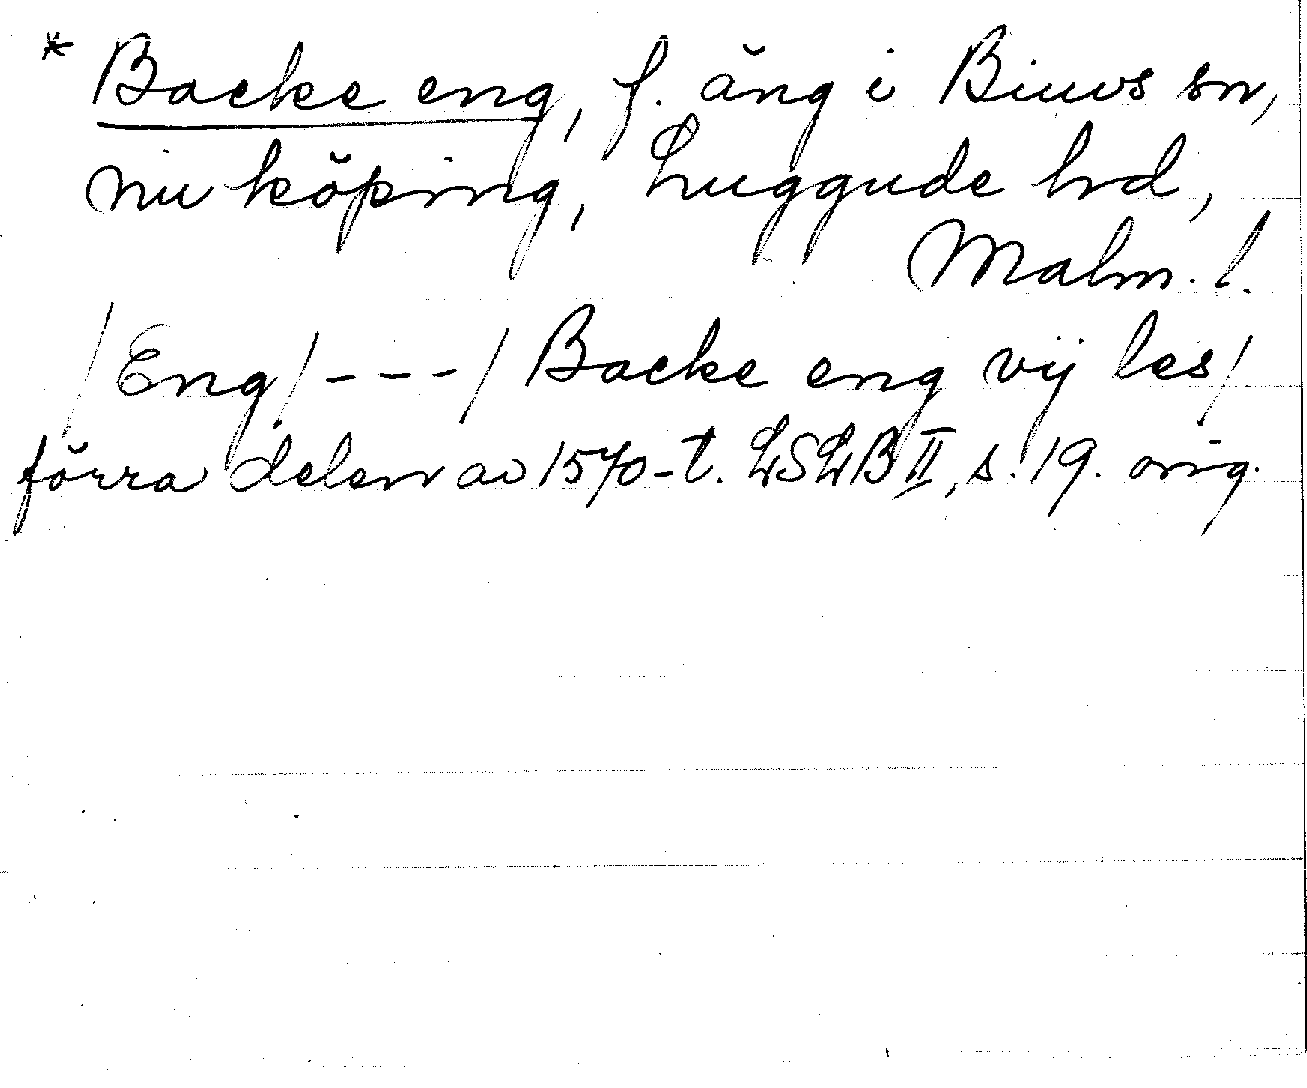 * Backe eng, f. äng i Biuvs sn,
nu köping, Luggude hd,
Malm. l.
/Eng/ - - - / Backe eng vij les/
förra delen av 1570-t. LSLB II, s. 19. orig.